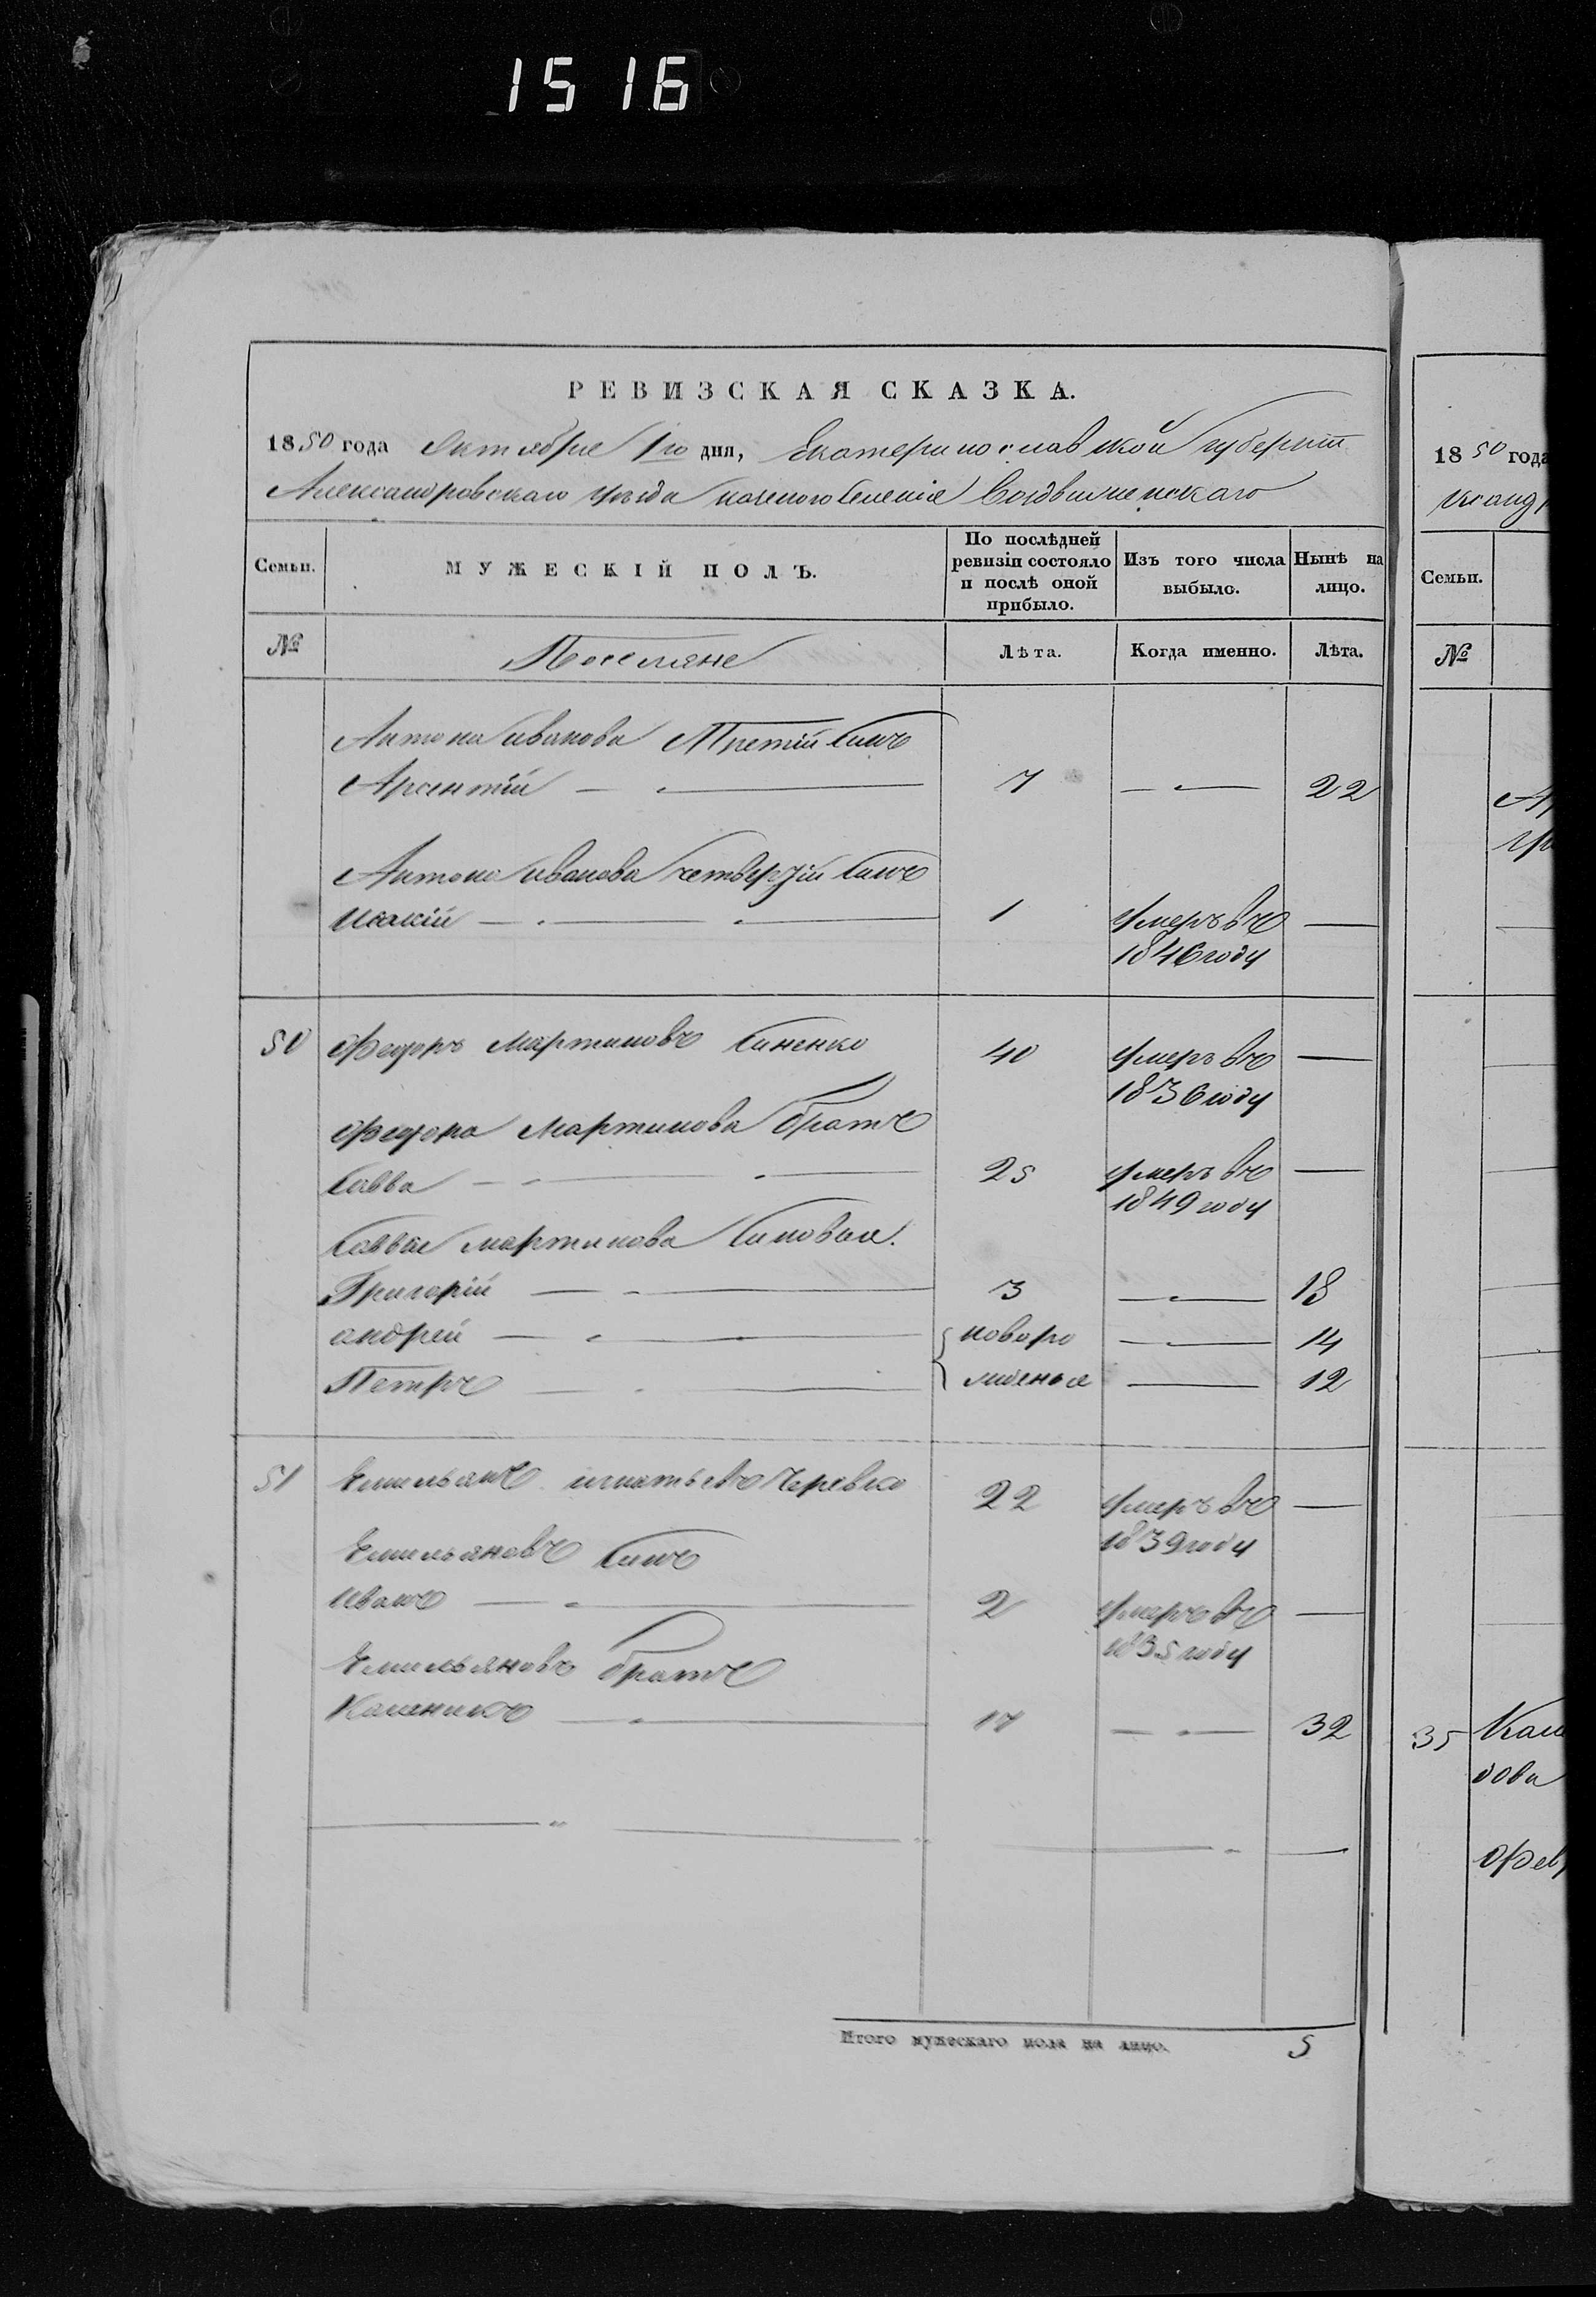 1516
РЕВИЗСКАЯ СКАЗКА.
1850 года Октября 1го дня, Екатеринославской губерніи
Александровскаго уезда казеного селенія Воздвиженскаго
Семьи. МУЖЕСКІЙ ПОЛЪ. По послѣдней ревизіи состояло и послѣ оной прибыло. Изъ того числа выбыло. Нынѣ на лицо.
№ Поселяне Лѣта. Когда именно. Лѣта.
Антона Иванова Третій Синъ
Арсентій 7 22
Антона Иванова четвертій Синъ
Исакій 1 умеръ въ
1846 году
50 Федоръ Мартиновъ Синенко 40 умеръ въ
1836 году
Федора Мартинова братъ
Савва 25 умеръ въ
1849 году
Саввы Мартинова Синовья.
Григорій 3 18
андрей новоро 14
Петръ жденые 12
51 Емельянъ игнатьевъ Черевко 22 умеръ въ
1839 году
Емильяновъ Синъ
Иванъ 2 умеръ въ
1835 году
Емильяновъ братъ
Каленикъ 17 32
Итого мужескаго пола на лицо. 5
1850 года
Семьи.
№
35
дова